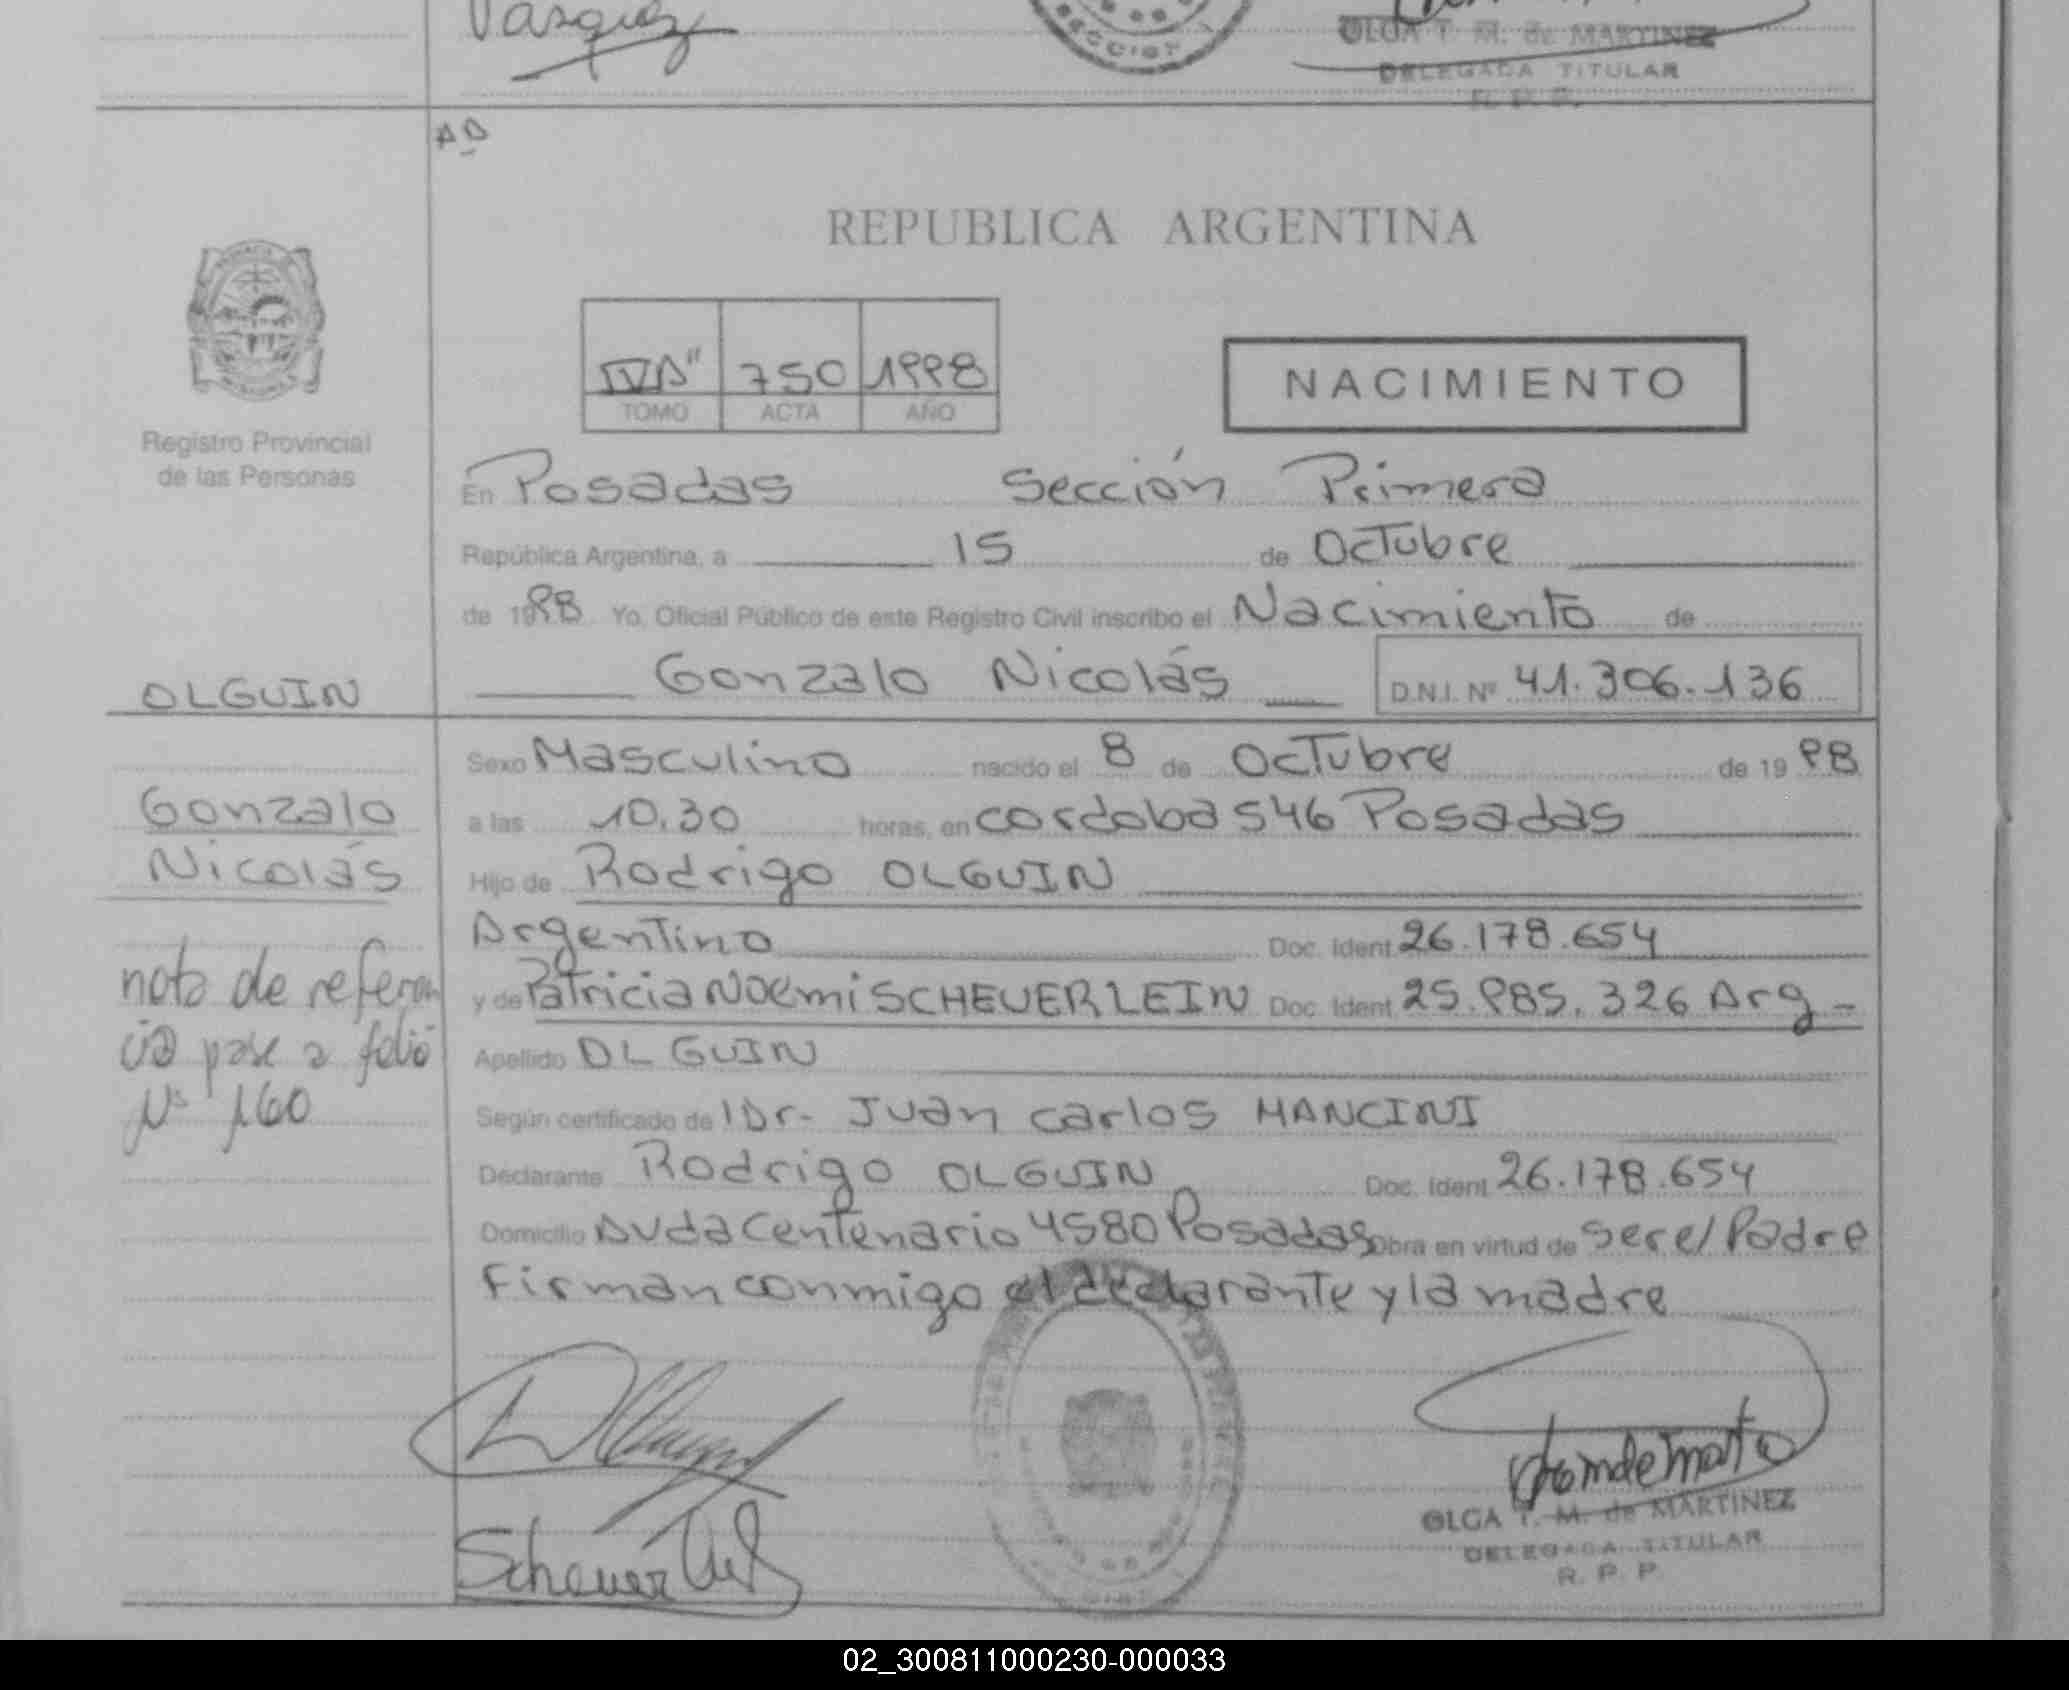 Vasquez
SECCION
OLGA T. M. de MARTINEZ
DELEGADA TITULAR
R. P. P.
REPUBLICA ARGENTINA
750 1998
TOMO ACTA AÑO
NACIMIENTO
Registro Provincial
de las Personas
En Posadas Sección Primera
República Argentina, a 15 de Octubre
de 1998 Yo, Oficial Público de este Registro Civil inscribo el Nacimiento de
OLGUIN
Gonzalo Nicolás D.N.I. Nº 41.306.136
Sexo Masculino nacido el 8 de Octubre de 1998
Gonzalo
Nicolás
a las 10.30 horas, en cordoba 546 Posadas
Hijo de Rodrigo OLGUIN
Argentino Doc. Ident. 26.178.654
y de Patricia Noemi SCHEUERLEIN Doc. Ident. 25.985.326 Arg-
nota de referen
cia pase a folio
Nº 160
Apellido OLGUIN
Según certificado de Dr- Juan Carlos MANCINI
Declarante Rodrigo OLGUIN Doc. Ident. 26.178.654
Domicilio Avda Centenario 4580 Posadas Obra en virtud de ser el Padre
Firman conmigo el declarante y la madre
OLGA T. M. de MARTINEZ
DELEGADA TITULAR
R. P. P.
02_300811000230-000033